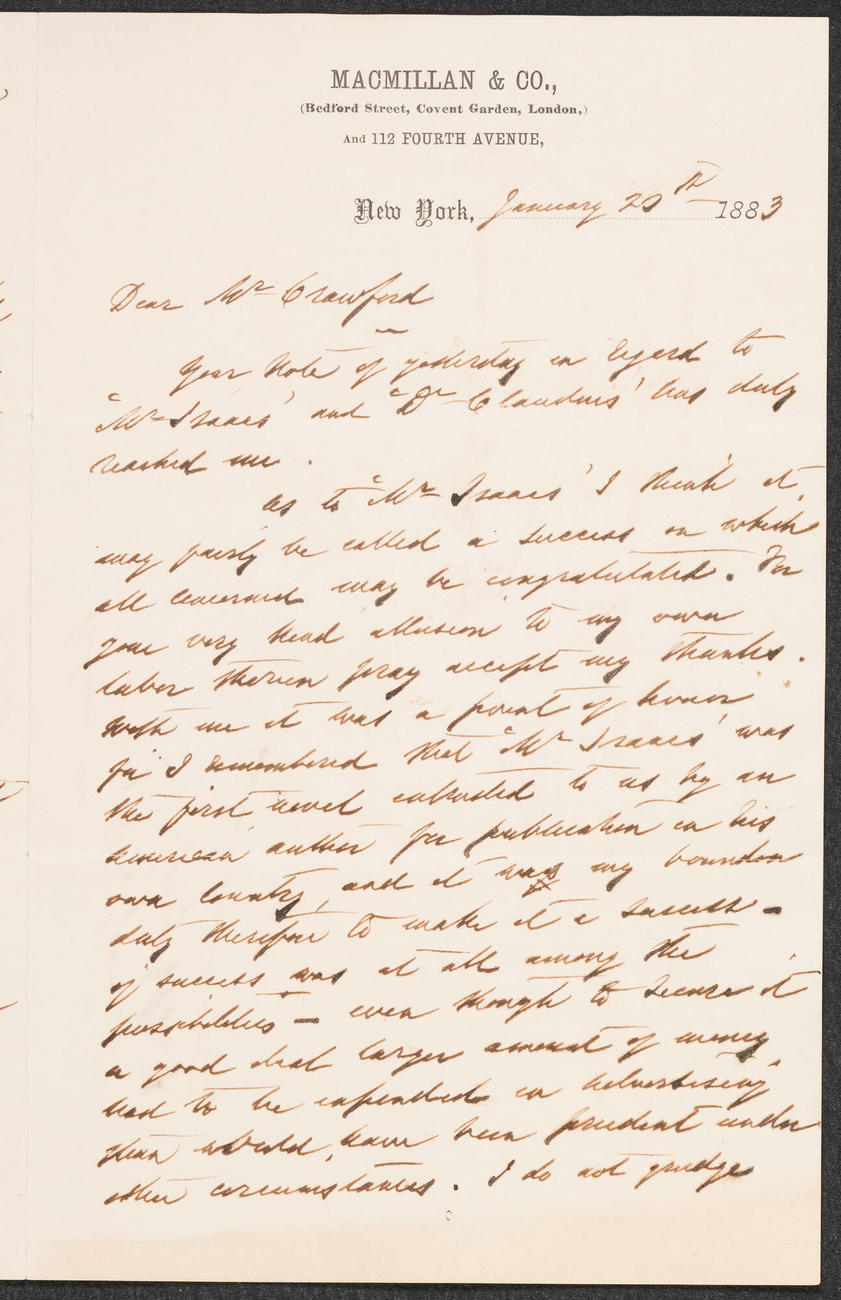 MACMILLAN & CO.,
(Bedford Street, Covent Garden, London,)
And 112 FOURTH AVENUE,
New York, January 20th 1883
Dear Mr Crawford
Your note of yesterday in regard to
"Mr Isaacs" and "Dr Claudius" has duly
reached me.
As to "Mr Isaacs" I think it
may fairly be called a success on which
all concerned may be congratulated. For
your very kind allusion to my own
labor therein pray accept my thanks.
With me it was a point of honor
for I remembered that "Mr Isaacs" was
the first novel entrusted to us by an
American author for publication in his
own country, and it was my bounden
duty therefore to make it a success -
if success was at all among the
possibilities - even though to secure it
a good deal larger amount of money
had to be expended in advertising
than would have been prudent under
other circumstances. I do not grudge